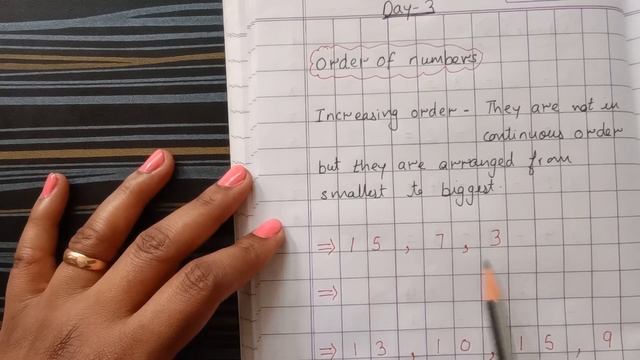 Day-3
Order of numbers
Increasing order - They are not in
continuous order
but they are arranged from
smallest to biggest.
⇒ 15, 7, 3
⇒
⇒ 13, 10, 15, 9